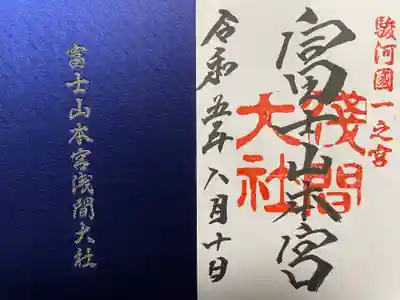 富士山本宮浅間大社
駿河國一之宮
富士山本宮
淺間大社
令和五年八月十日